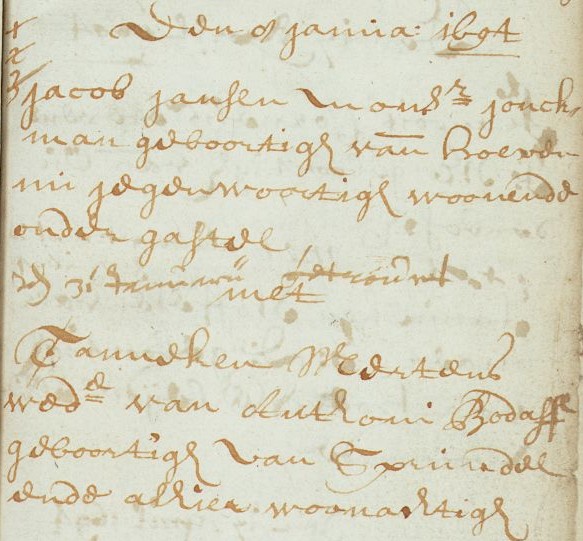 Den 8 janua: 1694
jacob jansen jonck
man geboortigh van hoeven
nu jegenwoortigh woonende
onder gastel
den 31 getrouwt
met
Tanneken Mertens
wede van Anthoni Bodaff
geboortigh van Sprundel
ende alhier woonachtigh